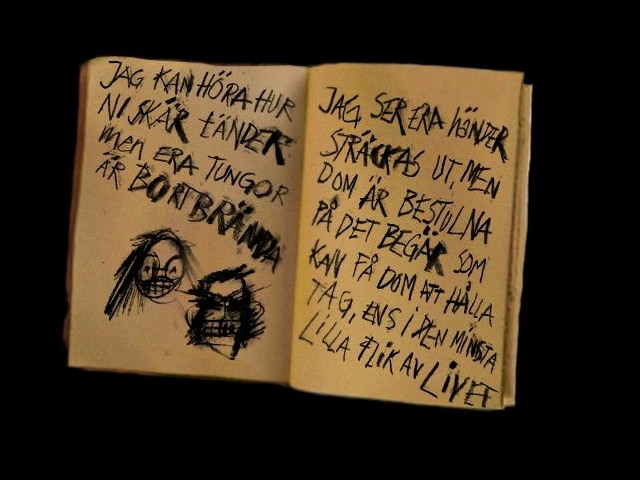 JAG KAN HÖRA HUR
NI SKÄR TÄNDER
men ERA TUNGOR
ÄR BORTBRÄNDA
JAG SER ERA HäNDER
STRÄCKAS UT, MEN
DOM ÄR BESTULNA
PÅ DET BEGÄR SOM
KAN FÅ DOM ATT HÅLLA
TAG, ENS i DEN MINSTA
LILLA FLIK AV LIVET